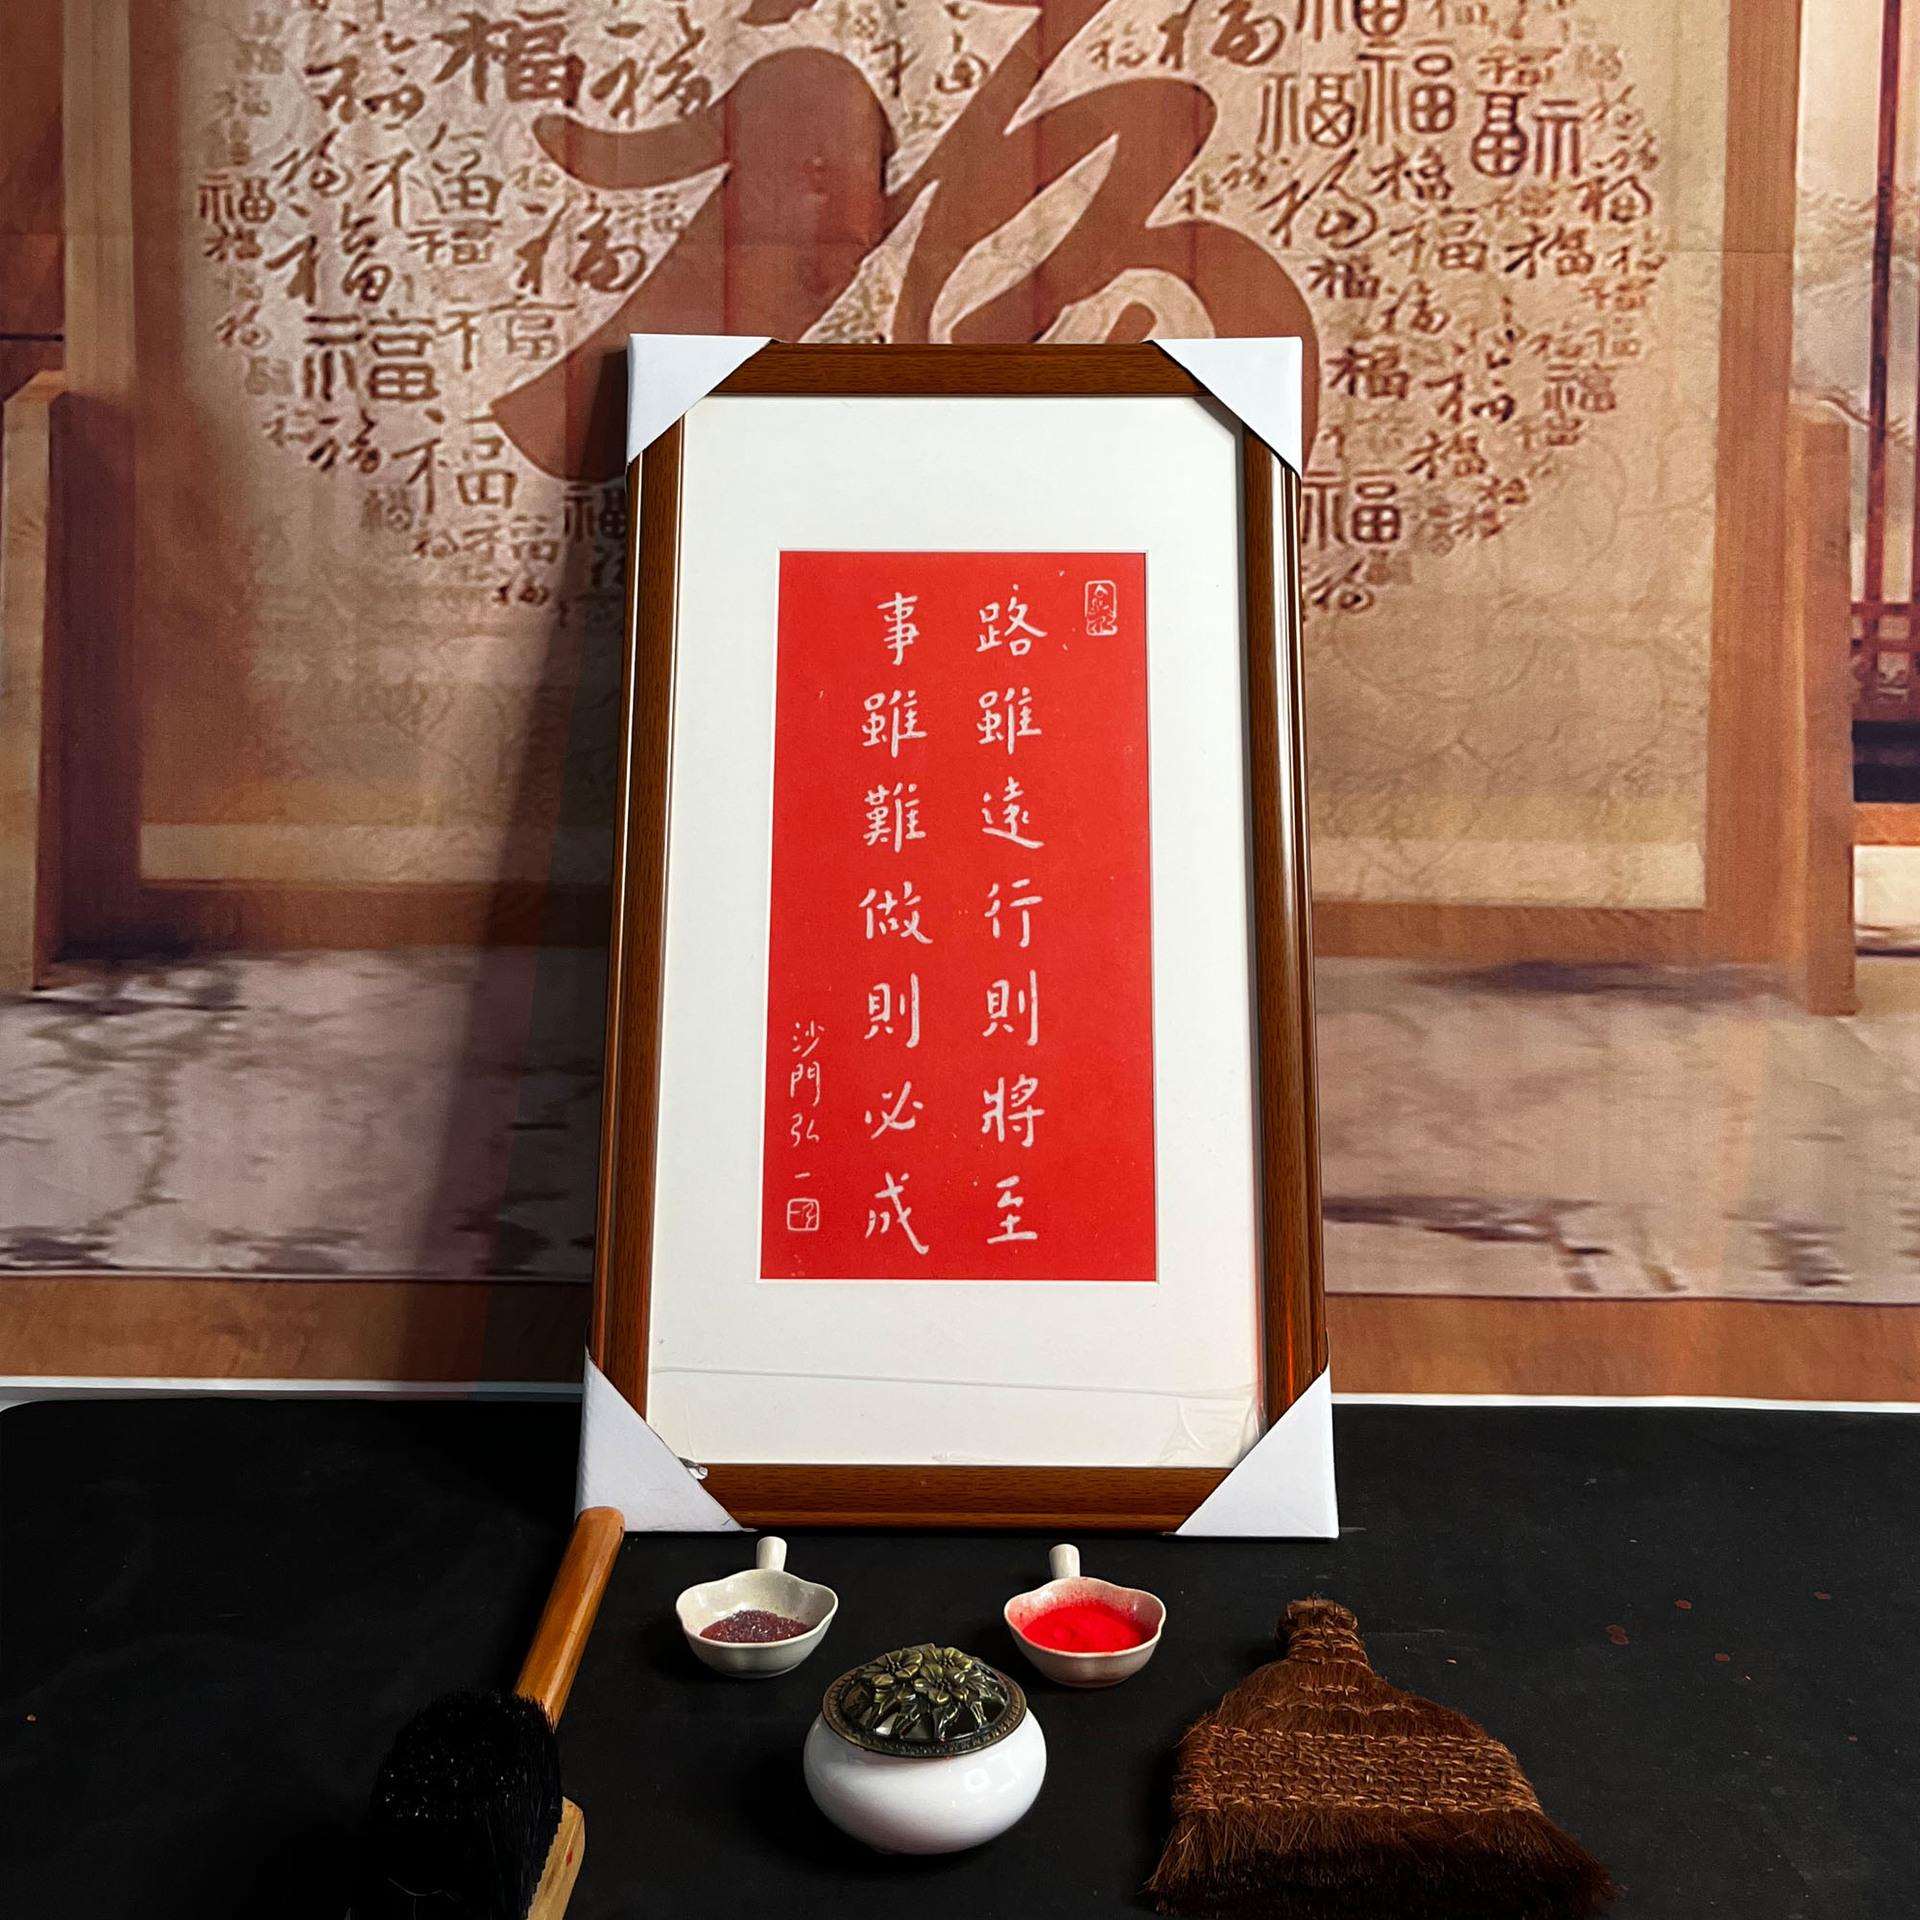 路雖遠行則將至
事雖難做則必成
沙門弘一
福